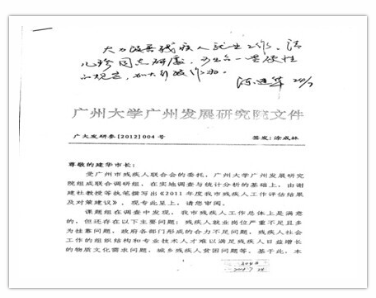 大力改善残疾人就业工作。请
心珍同志研处，
陈建华
广州大学广州发展研究院文件
广大发研委[2012]004号 签发：涂成林
尊敬的建华市长：
受广州市残疾人联合会的委托，广州大学广州发展研究
院组成联合调研组，在实地调查与统计分析的基础上，由谢
建社教授等执笔撰写出《2011年度我市残疾人工作评估结果
及对策建议》，现专此呈上，请您审阅。
课题组在调查中发现，我市残疾人工作总体上是满意
的，但还存在以下主要问题：残疾人就业岗位严重不足且多
为挂靠问题，政府各部门形成的合力不足问题，残疾人社会
工作的组织结构和专业技术人才难以满足残疾人日益增长
的物质文化需求问题，城乡残疾人贫困问题等；基于此，本